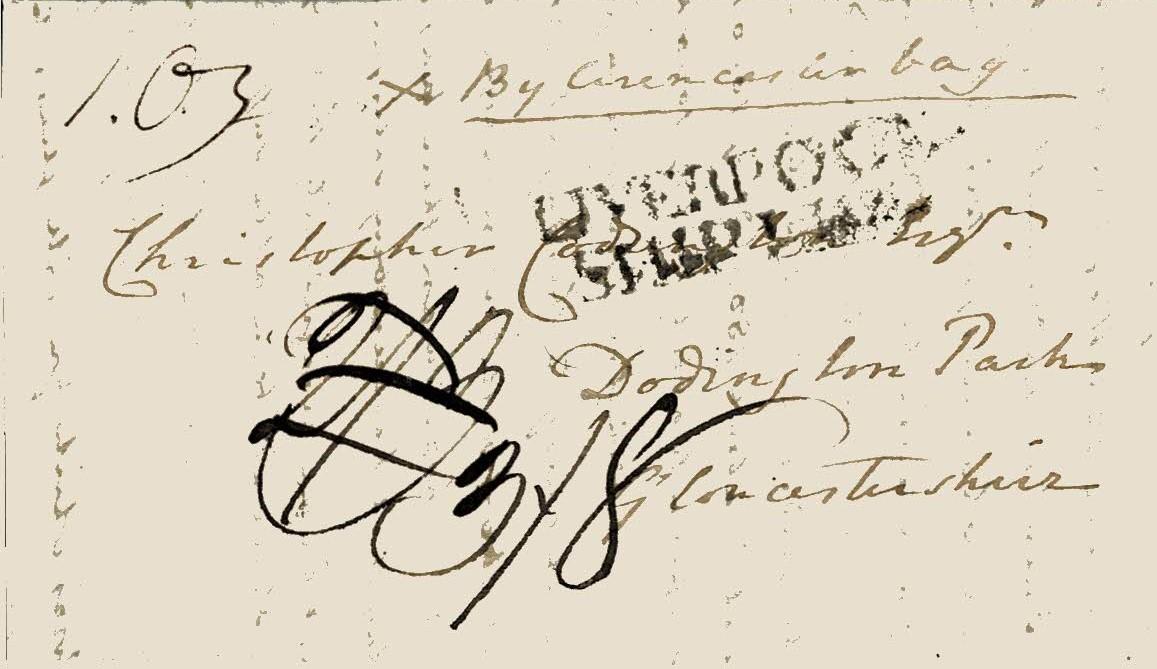 1.Oz
x By Cirencester bag
LIVERPOOL
SHIP LRE
Christopher Codrington Esqr.
Dodington Park
Gloucestershire
3/8